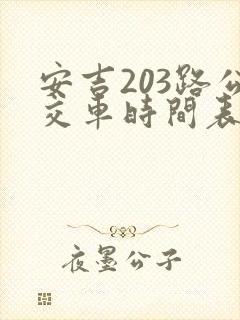 安吉203路公
交車時間表
夜墨公子